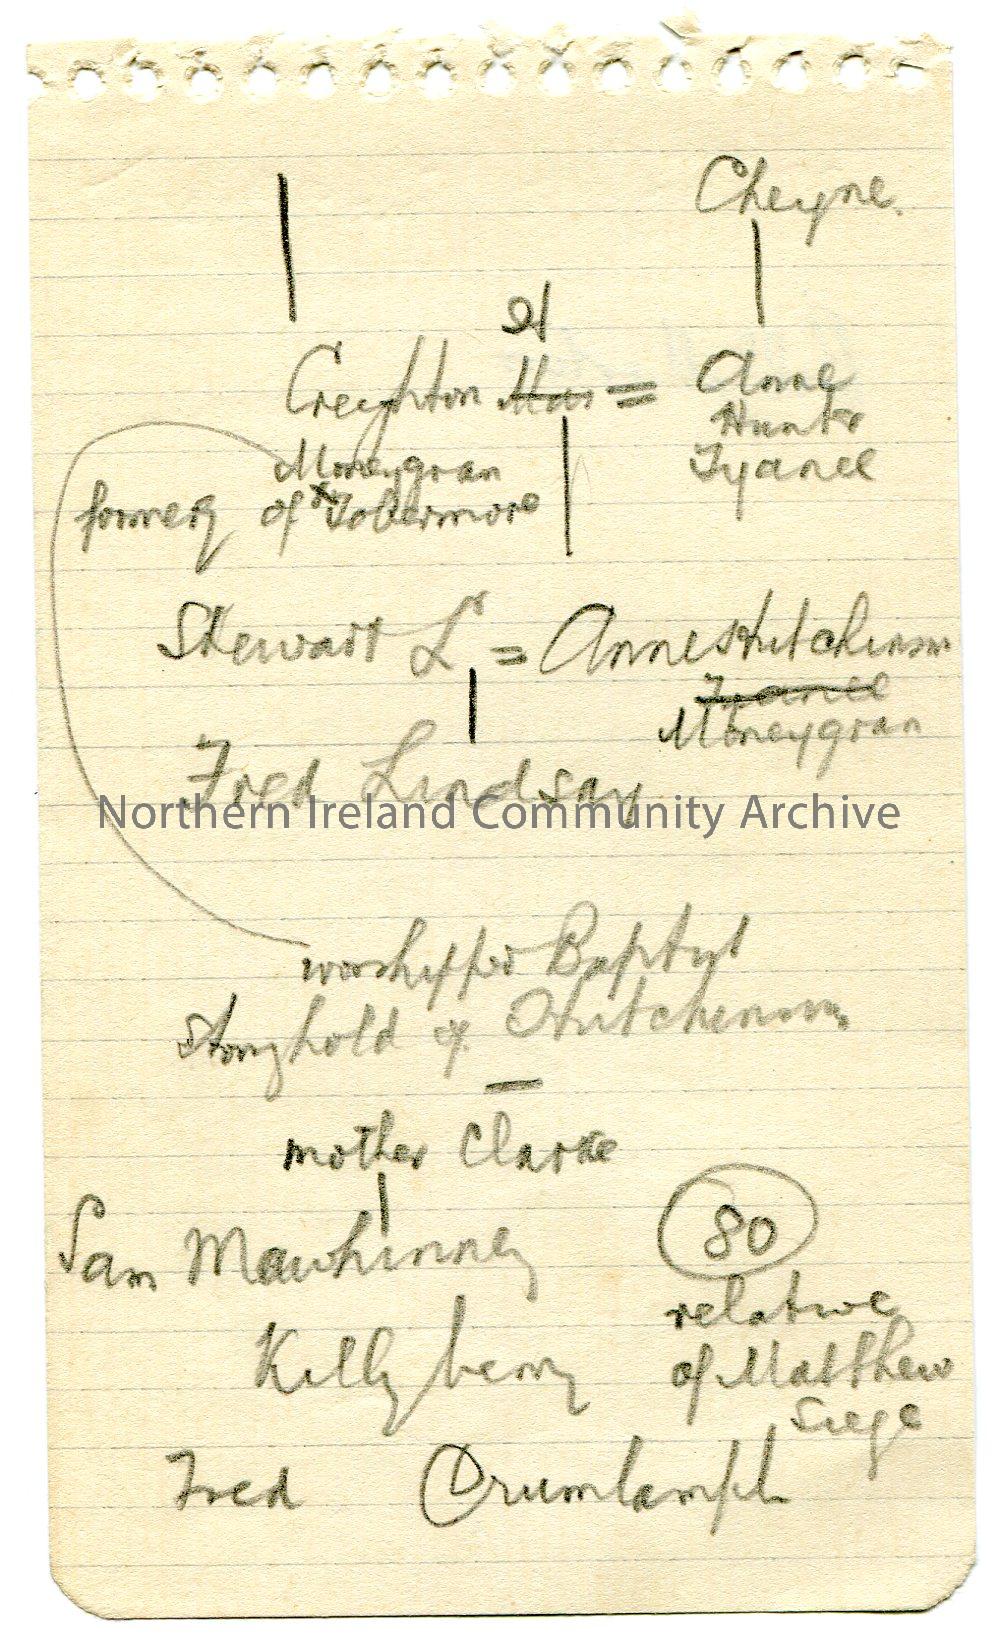 Cheyne.
Creighton = Anne
Hunter
Moneygran Tyanee
formerly of Tobermore
Stewart L = Anne Hutchinson
Tyanee
Moneygran
Fred Lindsay
Northern Ireland Community Archive
worshipped Baptist
stronghold of Hutchinson
mother Clarke
Sam Mawhinney 80
relative
Killyberry of Matthew
Siege
Fred Drumlamph